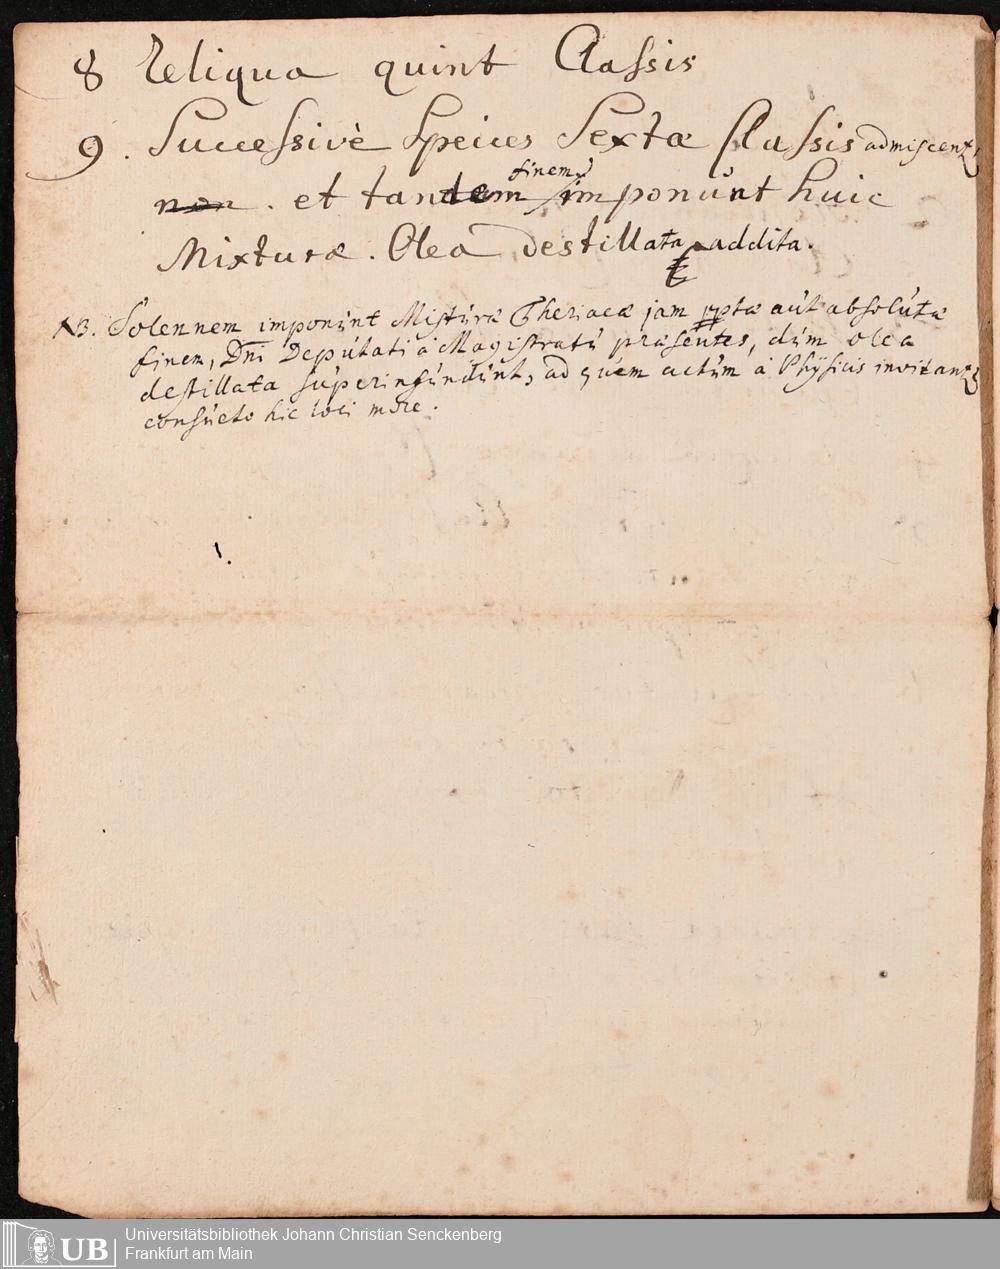 8 Reliqua quint Classis
9. Successivè Speices Sextæ Classis admiscent,
non. et tandem finem imponunt huic
Mixturæ. Olea destillata addita.
NB. Solennem imponunt Misturæ Theriacæ jam ptæ aut absolutæ
finem, Dni Deputati à Magistratu præsentes, dùm olea
destillata superinfundunt, ad quem actum à Physicis invitant,
consueto hic loci more.
1.
UB Universitätsbibliothek Johann Christian Senckenberg
Frankfurt am Main